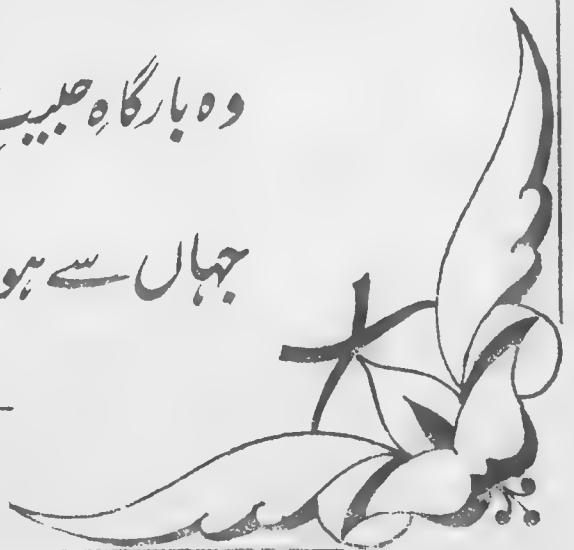 وہ بارگاہِ حبیب
جہاں سے ہو